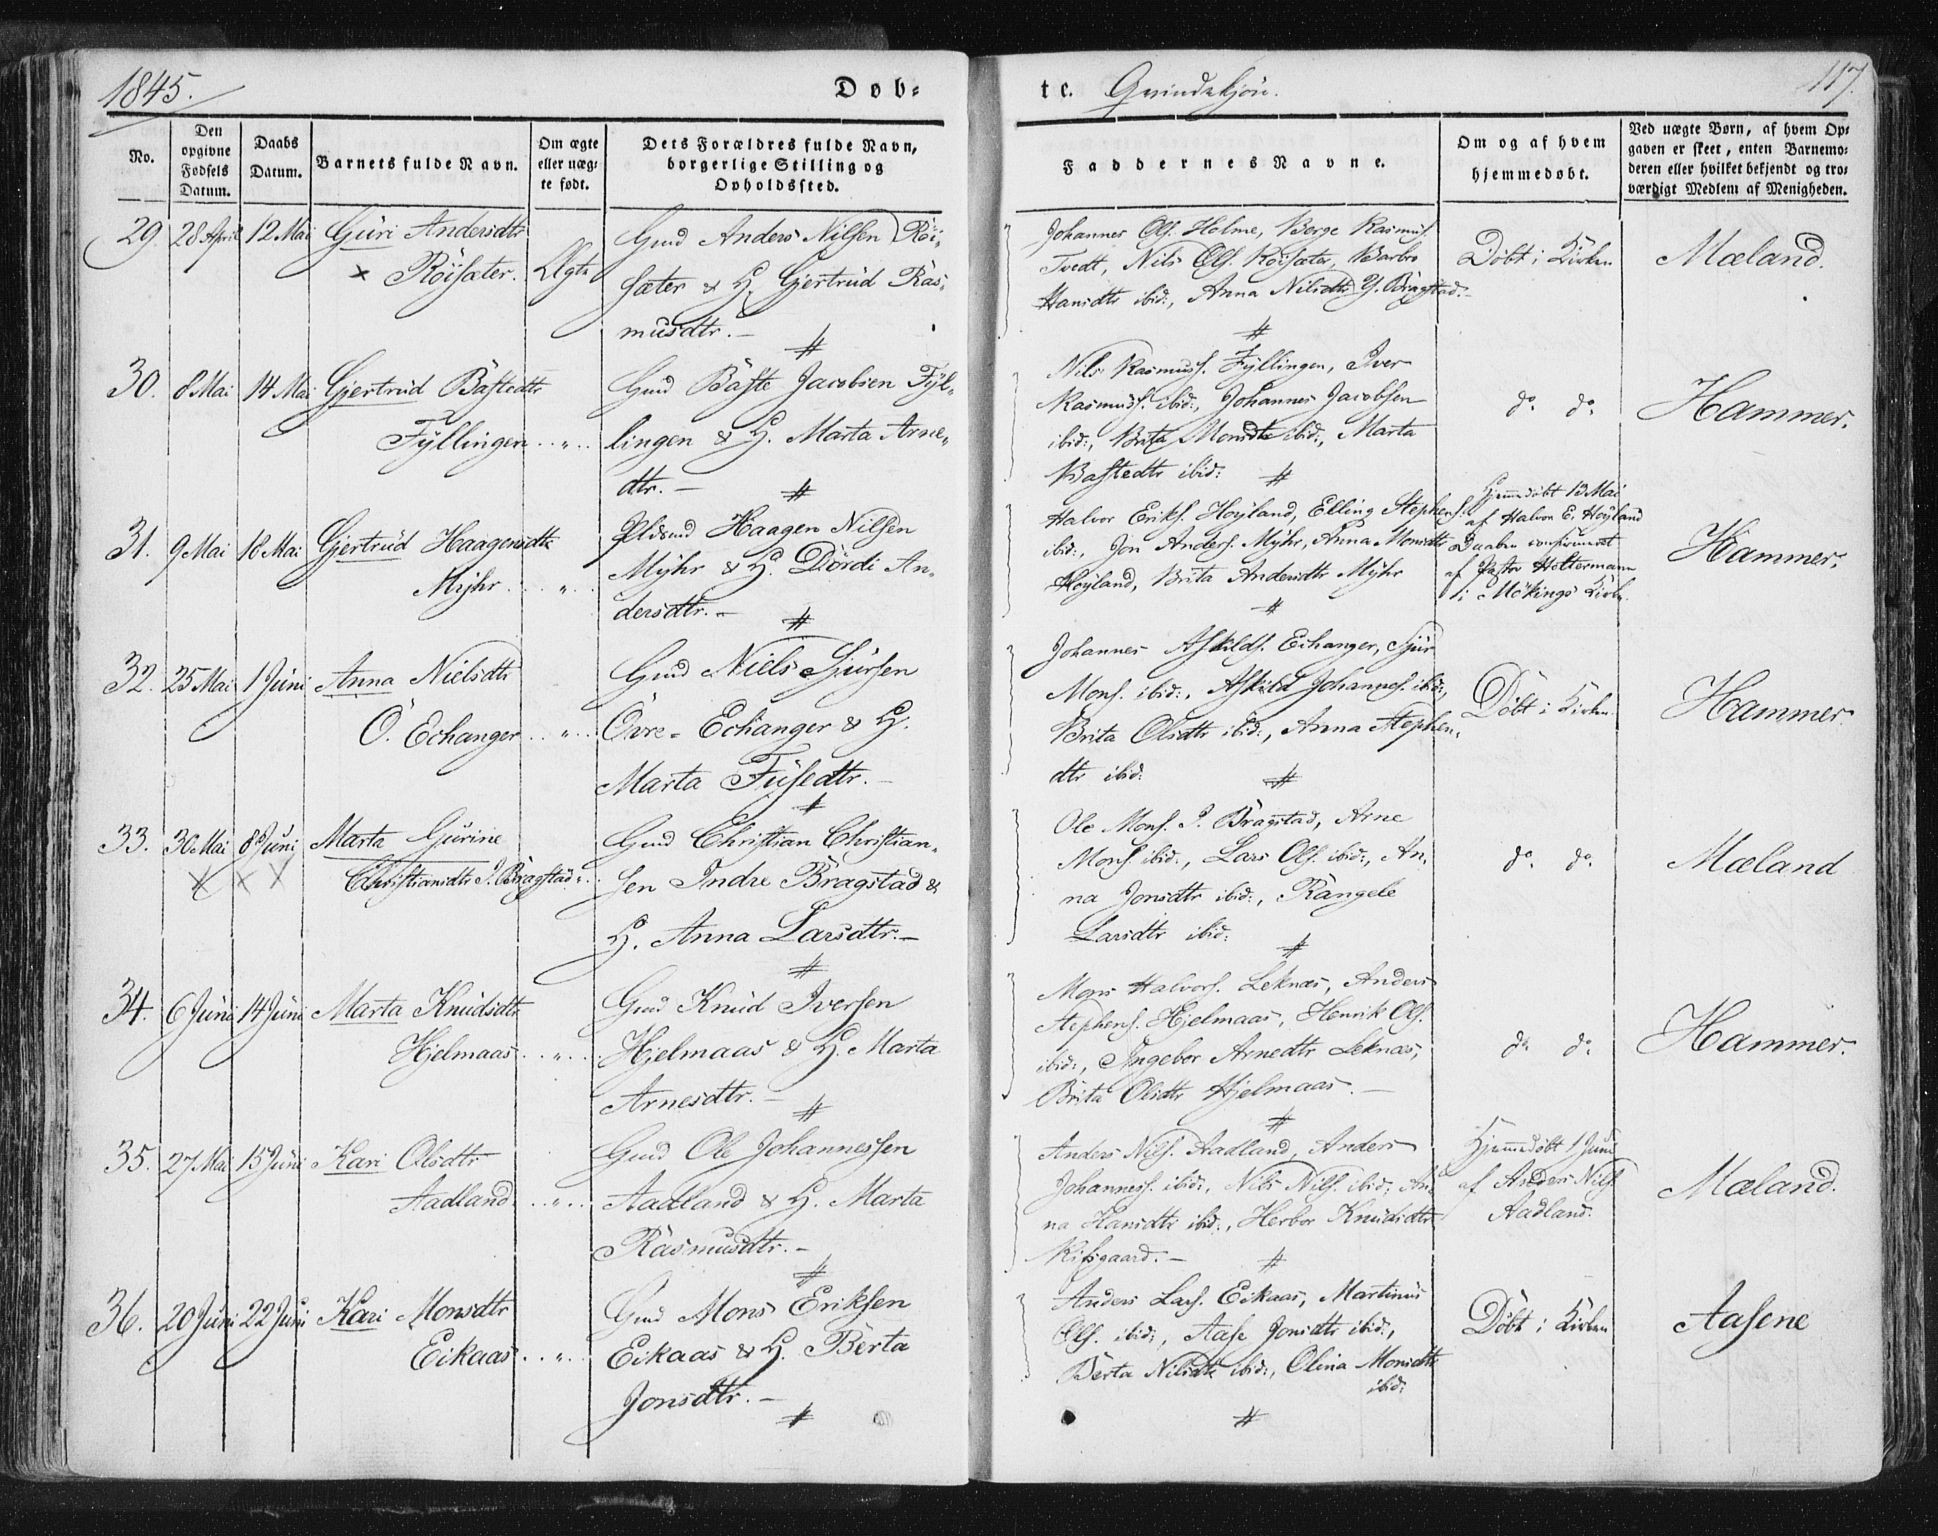 1845.
Døb-
te. Qvindekjön.
117.
No.
Den opgivne Fødsels Datum.
Daabs Datum.
Barnets fulde Navn.
Om ægte eller uæg- te født.
Dets Forældres fulde Navn, borgerlige Stilling og Opholdssted.
Faddernes Navne.
Om og af hvem hjemmedøbt.
Ved uægte Børn, af hvem Op- gaven er skeet, enten Barnemo- deren eller hvilket bekjendt og tro- værdigt Medlem af Menigheden.
29. 28 April 12 Mai Guri Andersdtr
× Röisæter. Ægte
Gmd Anders Nilsen Röi-
sæter & H. Gjertrud Ras-
musdtr. —
Johannes Ols. Holme, Berge Rasmus.
Tvedt, Nils Ols. Röisæter, Barbro
Hansdtr ibid:, Anna Nilsdtr Y. Bragstad. —
Döbt i Kirken
Mæland.
30. 8 Mai 14 Mai Gjertrud Bastedtr
Fyllingen .. „ ..
Gmd Baste Jacobsen Fyl-
lingen & H. Marta Arne-
dtr. —
Nils Rasmuss. Fyllingen, Iver
Rasmuss. ibid:, Johannes Jacobsen
ibid:, Brita Monsdtr ibid:, Marta
Bastedtr ibid:
do. do.
Hammer.
31. 9 Mai 18 Mai Gjertrud Haagensdtr
Myhr .. „ ..
Pldsmd Haagen Nilsen
Myhr & H. Dördi An-
dersdtr. —
Halvor Eriks. Hoyland, Elling Stephens.
ibid:, Jon Anders. Myhr, Anna Monsdtr
Hoyland, Brita Andersdtr Myhr
Hjemmedöbt 13 Mai
af Halvor E. Hoyland
Daaben confirmeret
af Pastor Holtermann
i Mökings Kirke.
Hammer.
32. 25 Mai 1 Juni Anna Nielsdtr
Ö. Echanger .. „ ..
Gmd Niels Sjursen
Övre- Echanger & H.
Marta Fusedtr. —
Johannes Askilds. Echanger, Sjur
Mons. ibid:, Askild Johannes. ibid:,
Brita Olsdtr ibid:, Anna Stephen-
dtr ibid:
Döbt i Kirken
Hammer.
33. 30 Mai 8 Juni Marta Gurine
× × × Christiansdtr I. Bragstad ..
Gmd Christian Christian-
sen Indre Bragstad &
H. Anna Larsdtr. —
Ole Mons. I. Bragstad, Arne
Mons. ibid:, Lars Ols. ibid:, An-
na Jonsdtr ibid:, Rangele
Larsdtr ibid:
do. do.
Mæland
34. 6 Juni 14 Juni Marta Knudsdtr
Hjelmaas .. „ ..
Gmd Knud Iversen
Hjelmaas & H. Marta
Arnesdtr. —
Mons Halvors. Leknæs, Anders
Stephens. Hjelmaas, Henrik Ols.
ibid:, Ingebor Arnedtr Leknæs,
Brita Olsdtr Hjelmaas. —
do. do.
Hammer.
35. 27 Mai 15 Juni Kari Olsdtr
Aadland .. „ ..
Gmd Ole Johannessen
Aadland & H. Marta
Rasmusdtr. —
Anders Nils. Aadland, Anders
Johanness. ibid:, Nils Nils. ibid:, An-
na Hansdtr ibid:, Herbor Knudsdtr
Risgaard. —
Hjemmedöbt 1 Juni
af Anders Nils.
Aadland.
Mæland.
36. 20 Juni 22 Juni Kari Monsdtr
Eikaas .. „ ..
Gmd Mons Eriksen
Eikaas & H. Berta
Jonsdtr. —
Anders Lars. Eikaas, Martinus
Ols. ibid:, Aase Jonsdtr ibid:,
Berta Nilsdtr ibid:, Olina Monsdtr
ibid:
Döbt i Kirken
Aasene